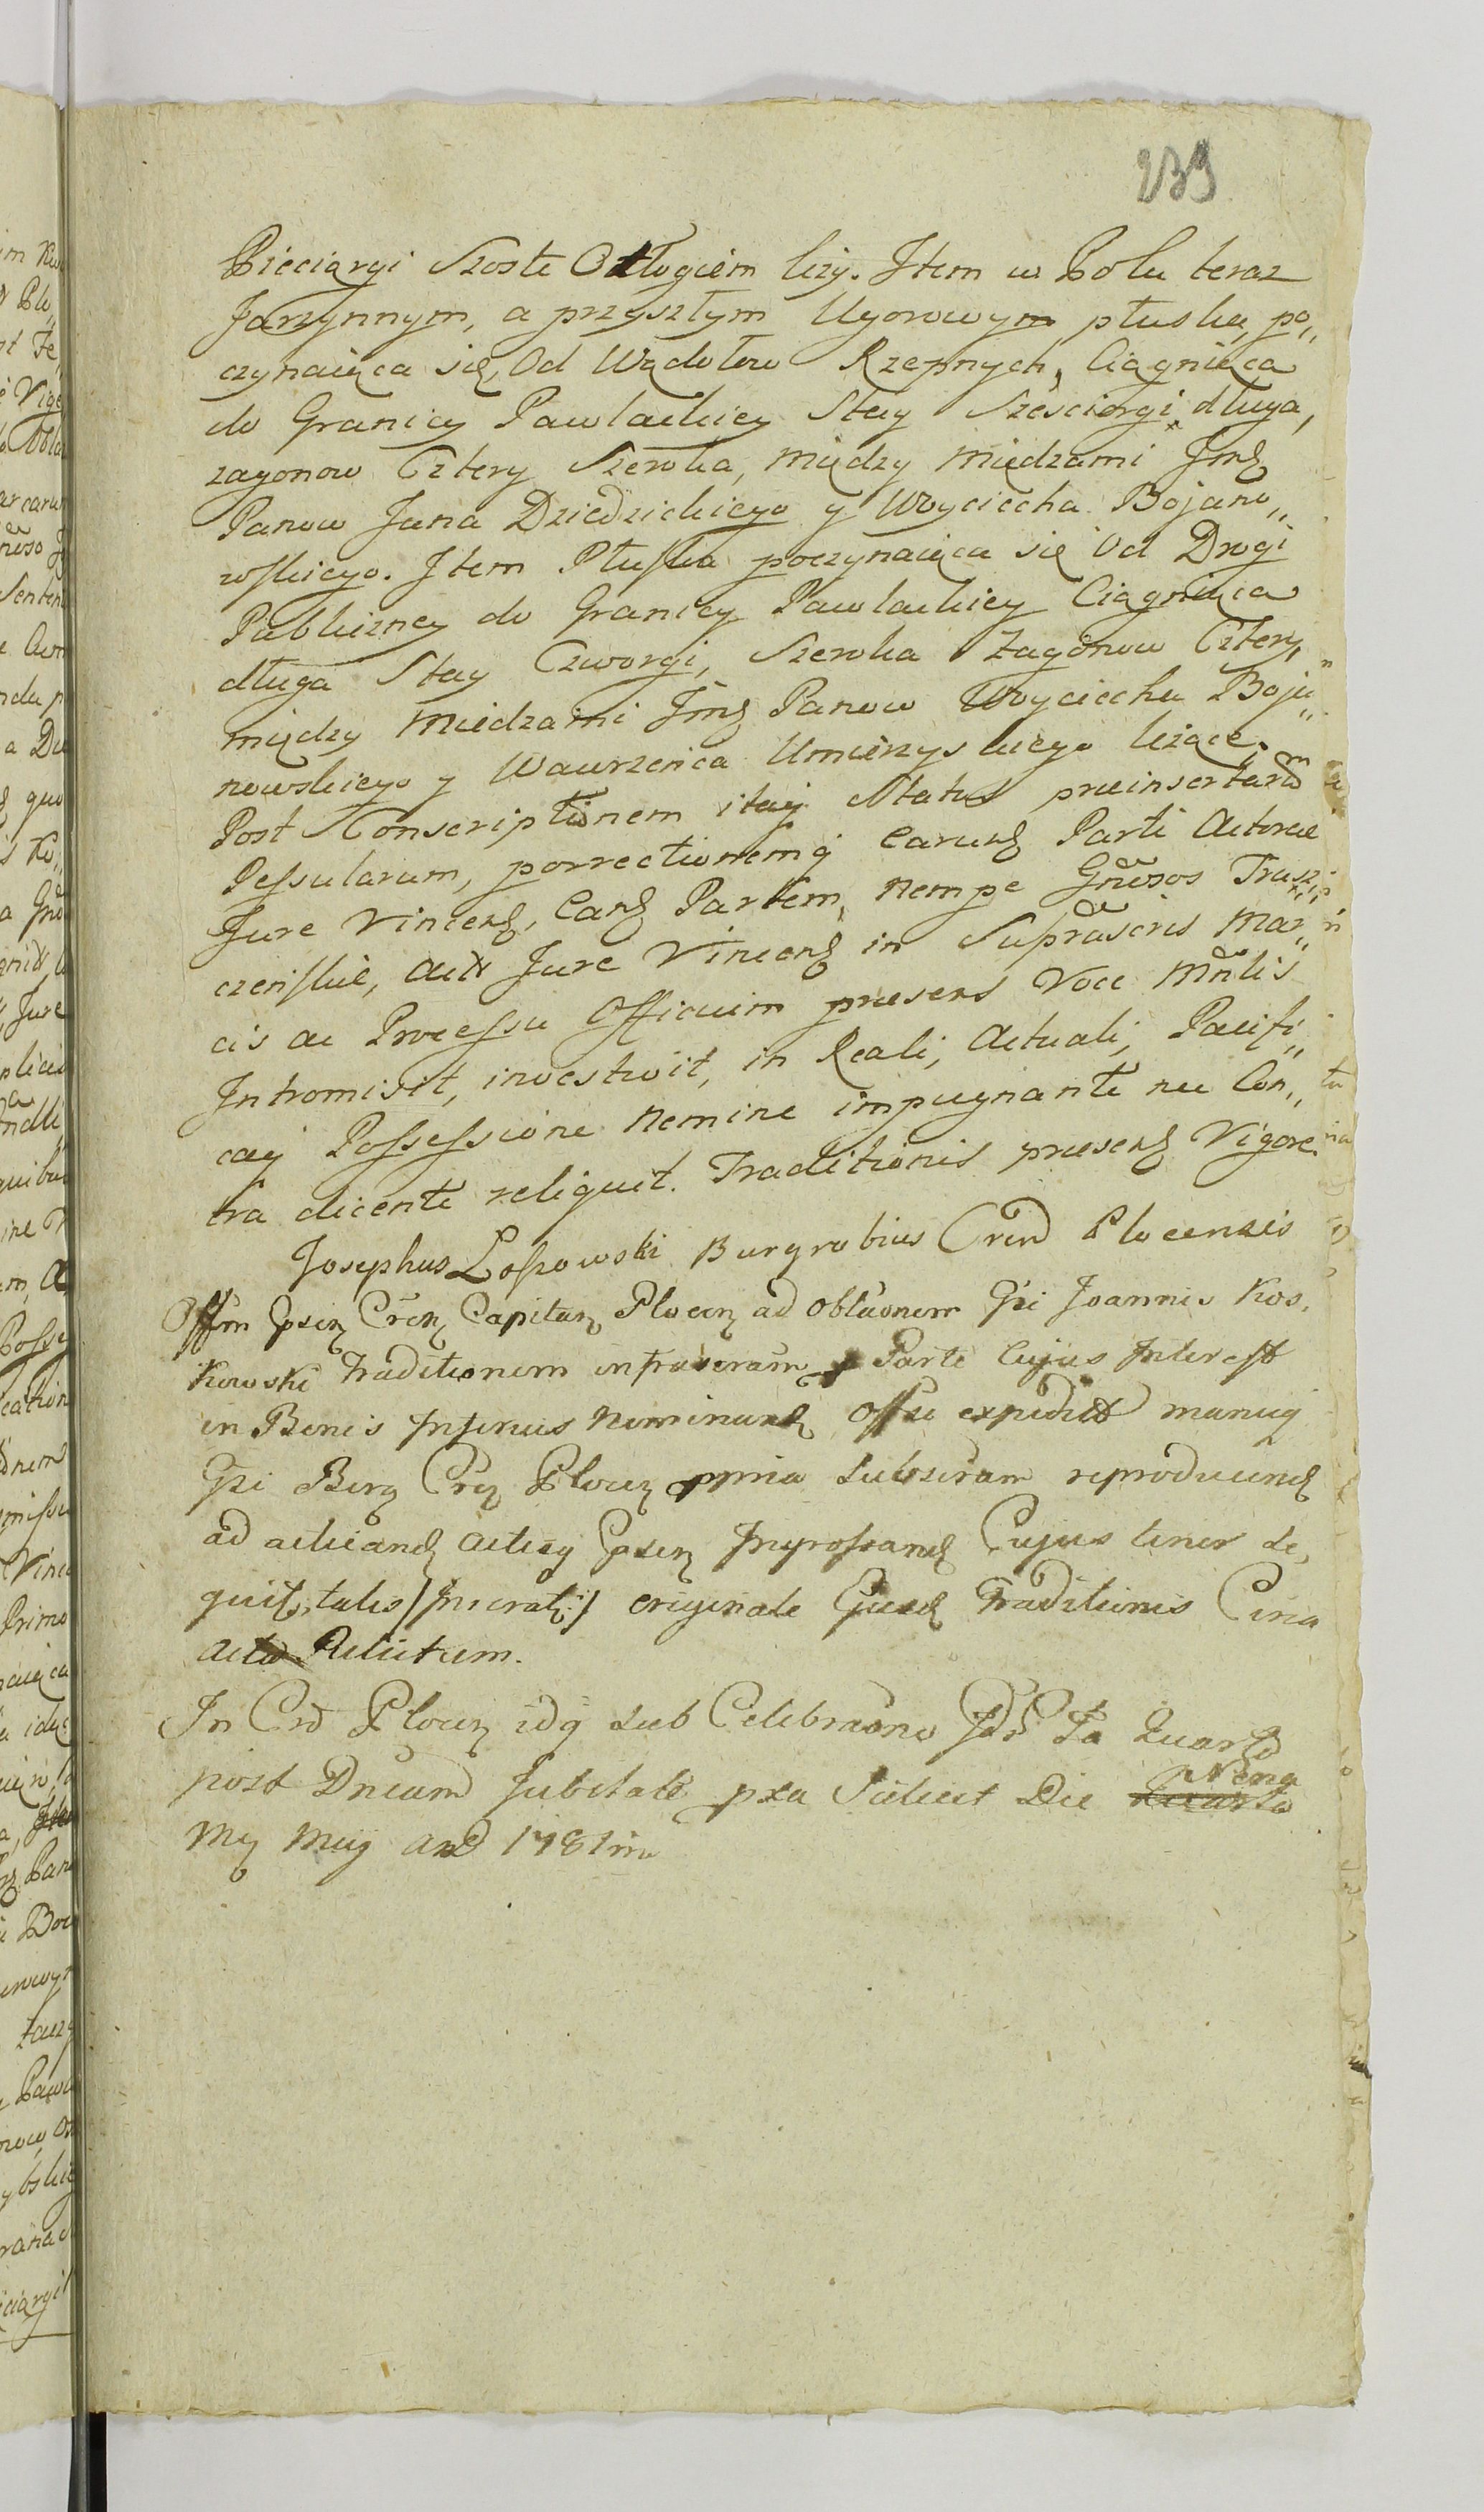 239
Pięciorgi Szoste Odłogiem leży. Item w Polu teraz
Jarzynnym, a przyszłym Ugorowym płuska, po„
czynaiąca się, Od Wądołow Rzepnych, Ciągnięca
do Granicy Pawłackiey Stay Sześciorgi długa,
zagonow Cztery Szeroka, między Miedzami Jmę
Panow Jana Dziedzickiego y Woyciecha Bojano„
wskiego. Item Płuska poczynaięca się Od Drogi
Publiczney do Granicy Pawłackiey Ciągnięca
długa Stay Czworgi, Szeroka Zagonow Cztery,
między Miedzami Jmę Panow Woyciecha Boja„
nowskiego y Wawrzeńca Umienzyskiego leżące.
Post Conscriptionem itaq Status preinsertarum
Pessularum, porrectionemq earund Parti Actoreae
Jure Vincend, Eand Partem, nempe Gnrosos Trusz„
czeńskie, actt Jure Vincend in Suprascris Mar„
cis ac Processu Officium presens Voce Mnlis
Intromisit, investivit, in Reali, Actuali, Pacifi„
caq Possessione Nemine impugnante nec Con„
tra dicente reliquit. Traditionis presend Vigore.
Josephus Lossowski Burgrabius Crend Plocensis
Offm psen Cren Capitan Plocen ad oblaonem Gsi Joannis Kos„
kowski Traditionem infrascram Parte Cujus Interest
in Bonis Inferius Nominand Offse expedit manuq
Gsi Burg Crez Plocen ppria Subscram reproducend
ad acticand Actisq psen Ingrossand Cujus tenor se„
quit, talis /Incrat:/ originale Ejusd Traditionis Circa
acta Relictum.
In Crd Plocen idq sub Celebraone Jdr Fa Quarta
post Dncam Jubilate pxa Scilicet Die Nona
Mq Maij And 1781mo